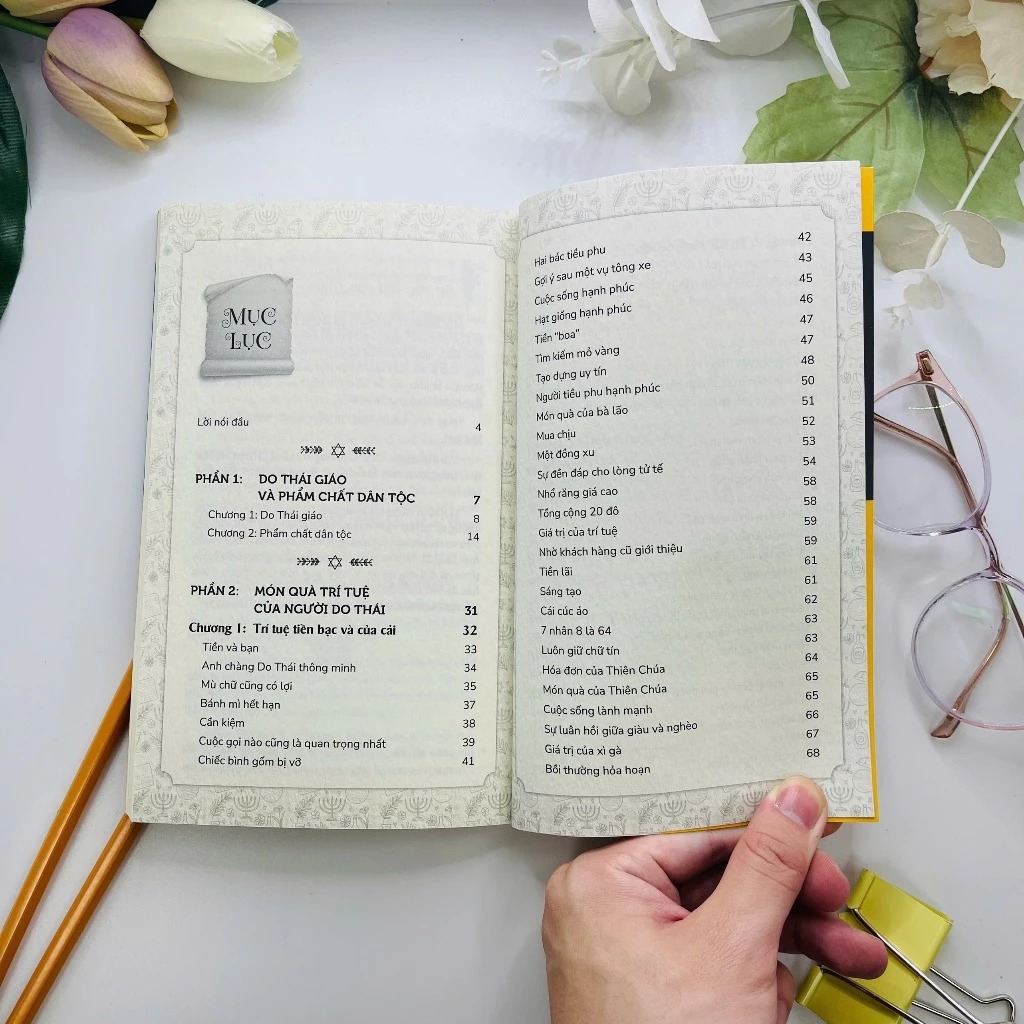 MỤC
LỤC
Lời nói đầu 4
PHẦN 1: DO THÁI GIÁO
VÀ PHẨM CHẤT DÂN TỘC 7
Chương 1: Do Thái giáo 8
Chương 2: Phẩm chất dân tộc 14
PHẦN 2: MÓN QUÀ TRÍ TUỆ
CỦA NGƯỜI DO THÁI 31
Chương 1: Trí tuệ tiền bạc và của cải 32
Tiền và bạn 33
Anh chàng Do Thái thông minh 34
Mù chữ cũng có lợi 35
Bánh mì hết hạn 37
Cần kiệm 38
Cuộc gọi nào cũng là quan trọng nhất 39
Chiếc bình gốm bị vỡ 41
Hai bác tiều phu 42
Gợi ý sau một vụ tông xe 43
Cuộc sống hạnh phúc 45
Hạt giống hạnh phúc 46
Tiền "boa" 47
Tìm kiếm mỏ vàng 47
Tạo dựng uy tín 48
Người tiều phu hạnh phúc 50
Món quà của bà lão 51
Mua chịu 52
Một đồng xu 53
Sự đền đáp cho lòng tử tế 54
Nhổ răng giá cao 58
Tổng cộng 20 đô 58
Giá trị của trí tuệ 59
Nhờ khách hàng cũ giới thiệu 59
Tiền lãi 61
Sáng tạo 61
Cái cúc áo 62
7 nhân 8 là 64 63
Luôn giữ chữ tín 63
Hóa đơn của Thiên Chúa 64
Món quà của Thiên Chúa 65
Cuộc sống lành mạnh 65
Sự luân hồi giữa giàu và nghèo 66
Giá trị của xì gà 67
Bồi thường hỏa hoạn 68